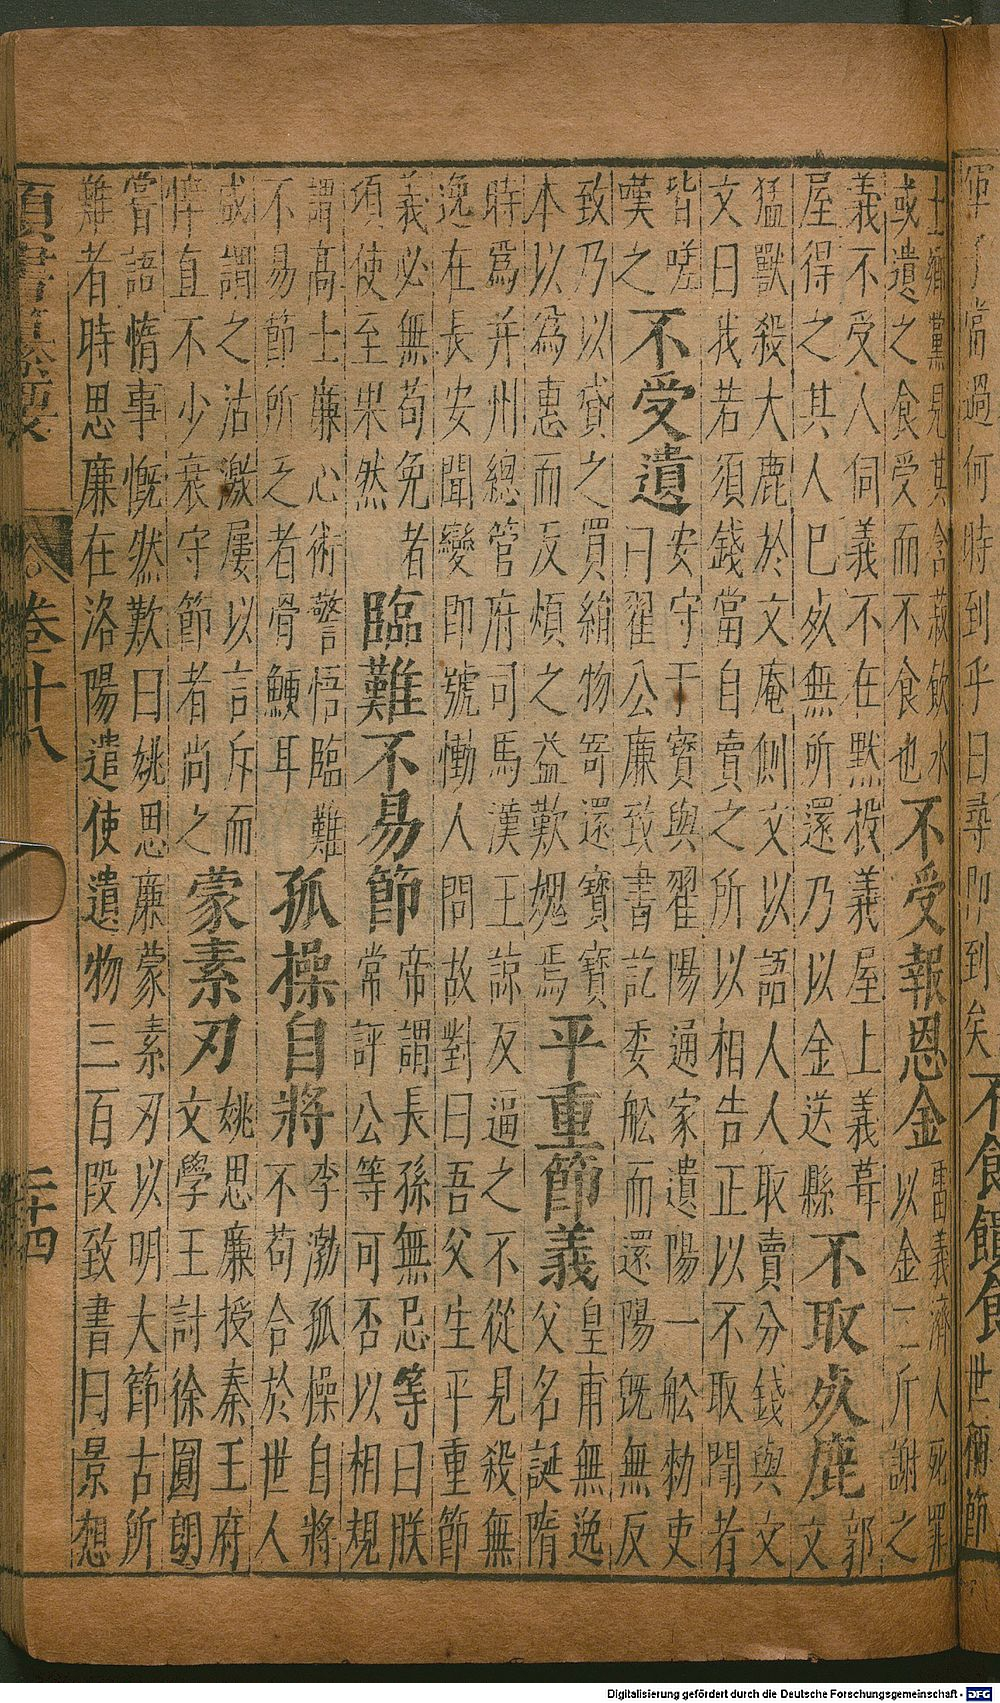 不食饋食
士鄉黨見其含菽飲水
或遺之食受而不食也
不受報恩金
雷義濟人死罪
以金二斤謝之
義不受人伺義不在默投義屋上義葺
屋得之其人巳死無所還乃以金送縣
不取死鹿
郭
文
猛獸殺大鹿於文庵側文以語人人取賣分錢與文
文曰我若須錢當自賣之所以相告正以不取聞者
皆嗟
嘆之
不受遺
安守于寶與翟陽通家遺陽一舩勑吏
曰翟公廉致書訖委舩而還陽旣無反
致乃以貸之買絹物寄還寶寶
本以為惠而反煩之益歎媿焉
平重節義
皇甫無逸
父名誕隋
時爲并州總管府司馬漢王諒反逼之不從見殺無
逸在長安聞變即號慟人問故對曰吾父生平重節
義必無苟免者
項使至果然
臨難不易節
帝謂長孫無忌等曰朕
常評公等可否以相規
謂高士廉心術警悟臨難
不易節所乏者骨鯁耳
孤操自將
李渤孤操自將
不苟合於世人
或謂之沽激屢以言斥而
悻直不少衰守節者尚之
蒙素刃
姚思廉授秦王府
文學王討徐圓朗
嘗語惰事慨然歎曰姚思廉蒙素刃以明大節古所
難者時思廉在洛陽遣使遺物三百段致書曰景想
卷十八
二十四
Digitalisierung gefördert durch die Deutsche Forschungsgemeinschaft - DFG